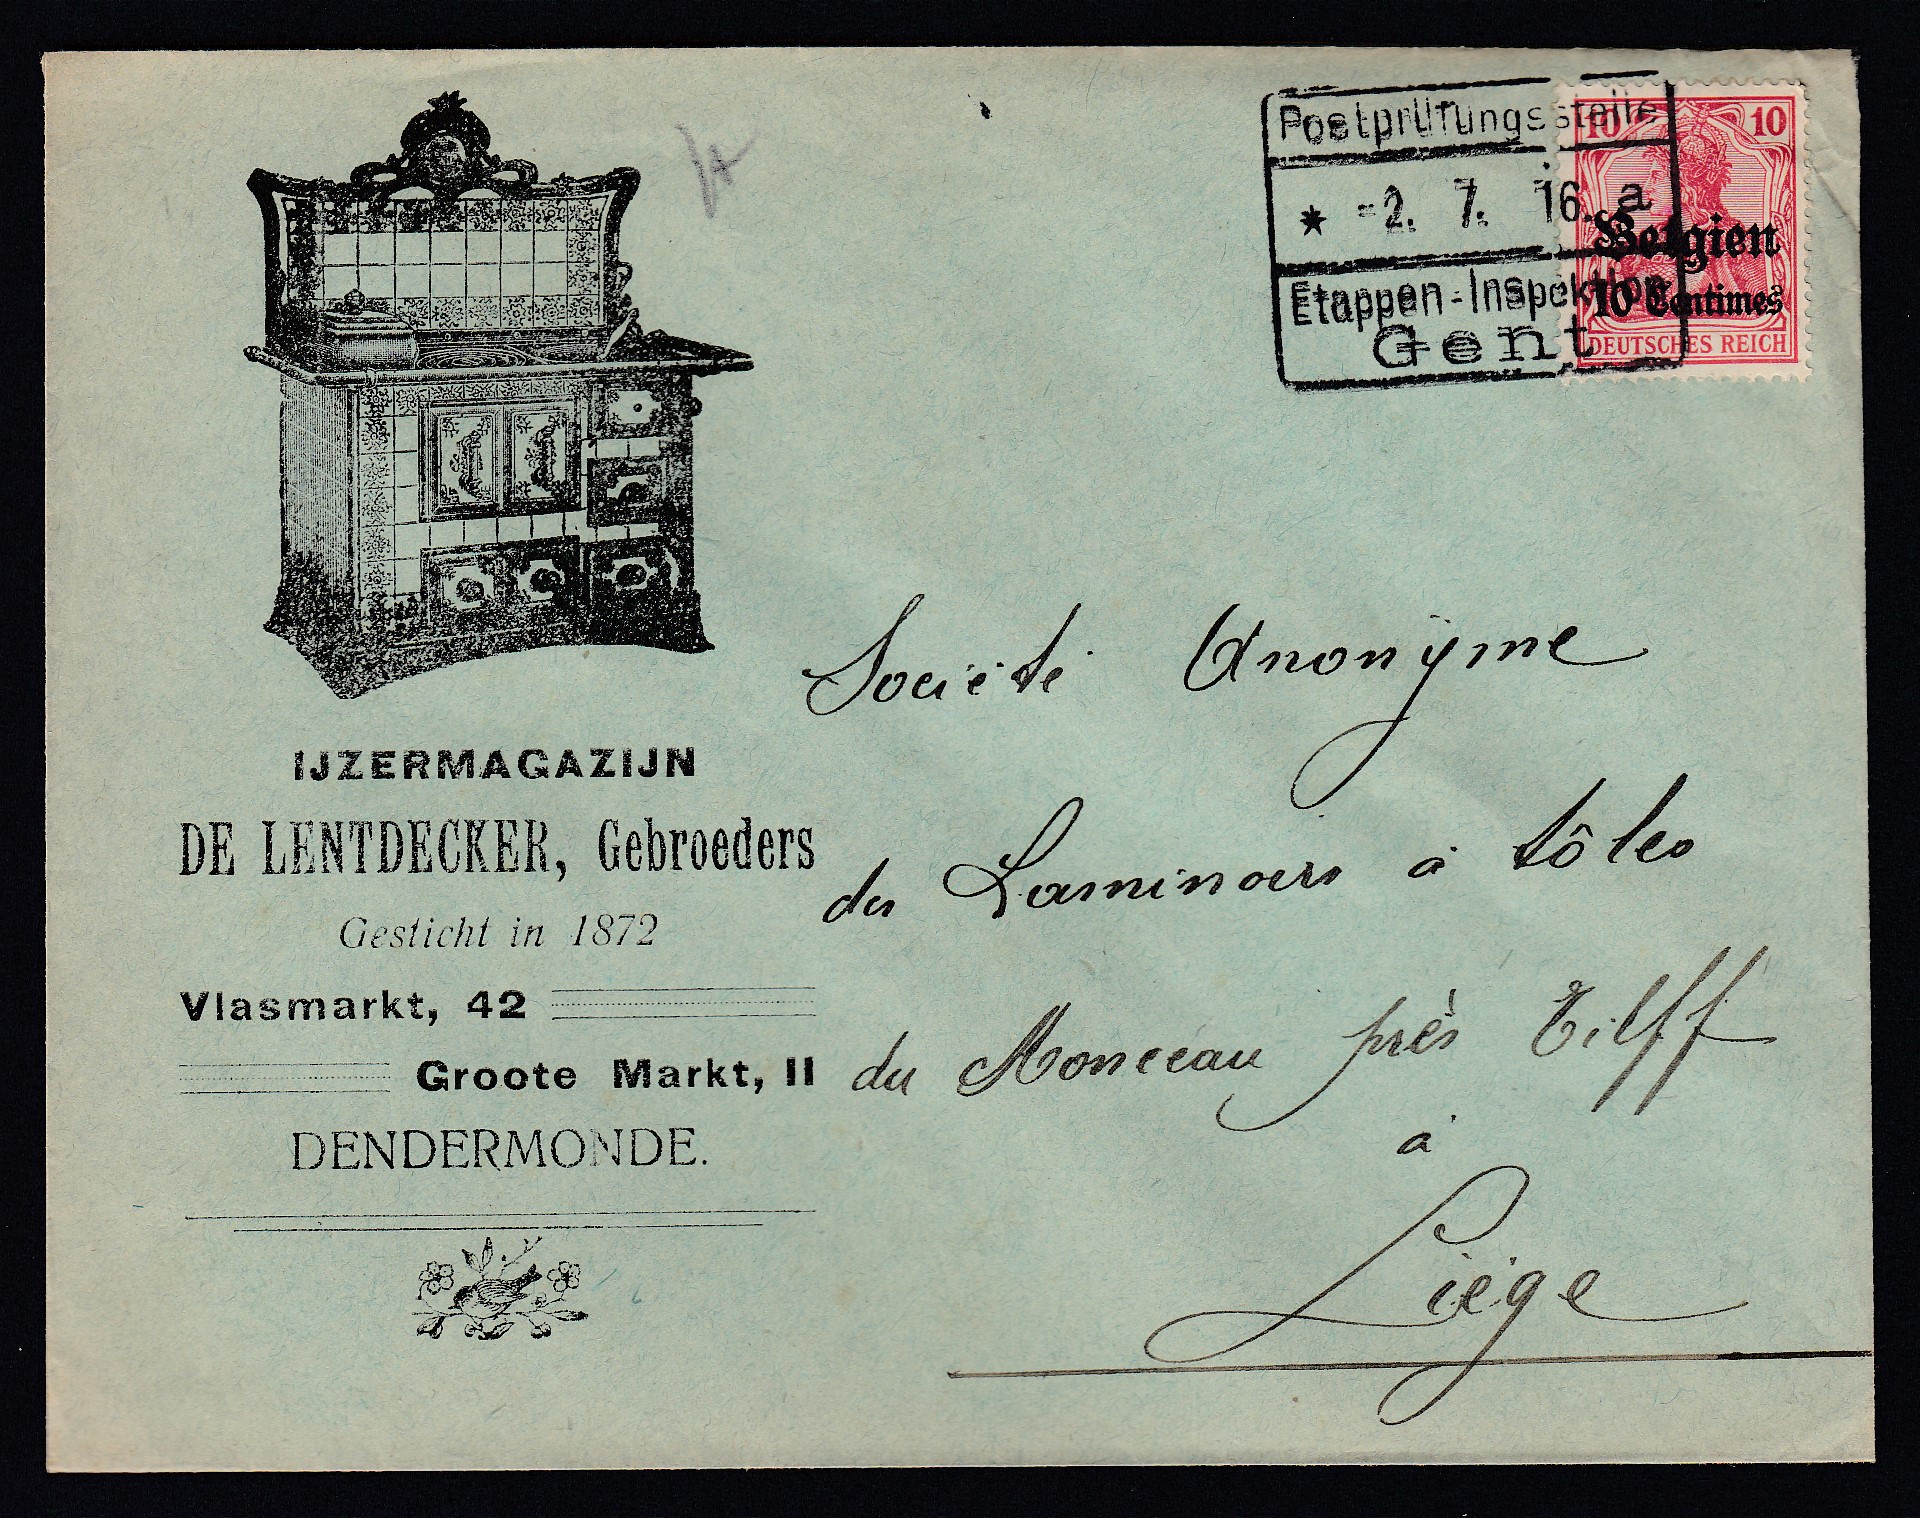 Postprüfungsstelle
* -2. 7. 16. a
Etappen-Inspektion
Gent
10 10
Belgien
10 Centimes
DEUTSCHES REICH
IJZERMAGAZIJN
DE LENTDECKER, Gebroeders
Gesticht in 1872
Vlasmarkt, 42
Groote Markt, II
DENDERMONDE.
Société Anonyme
des Laminoirs à tôles
du Monceau près Tilff
à
Liége